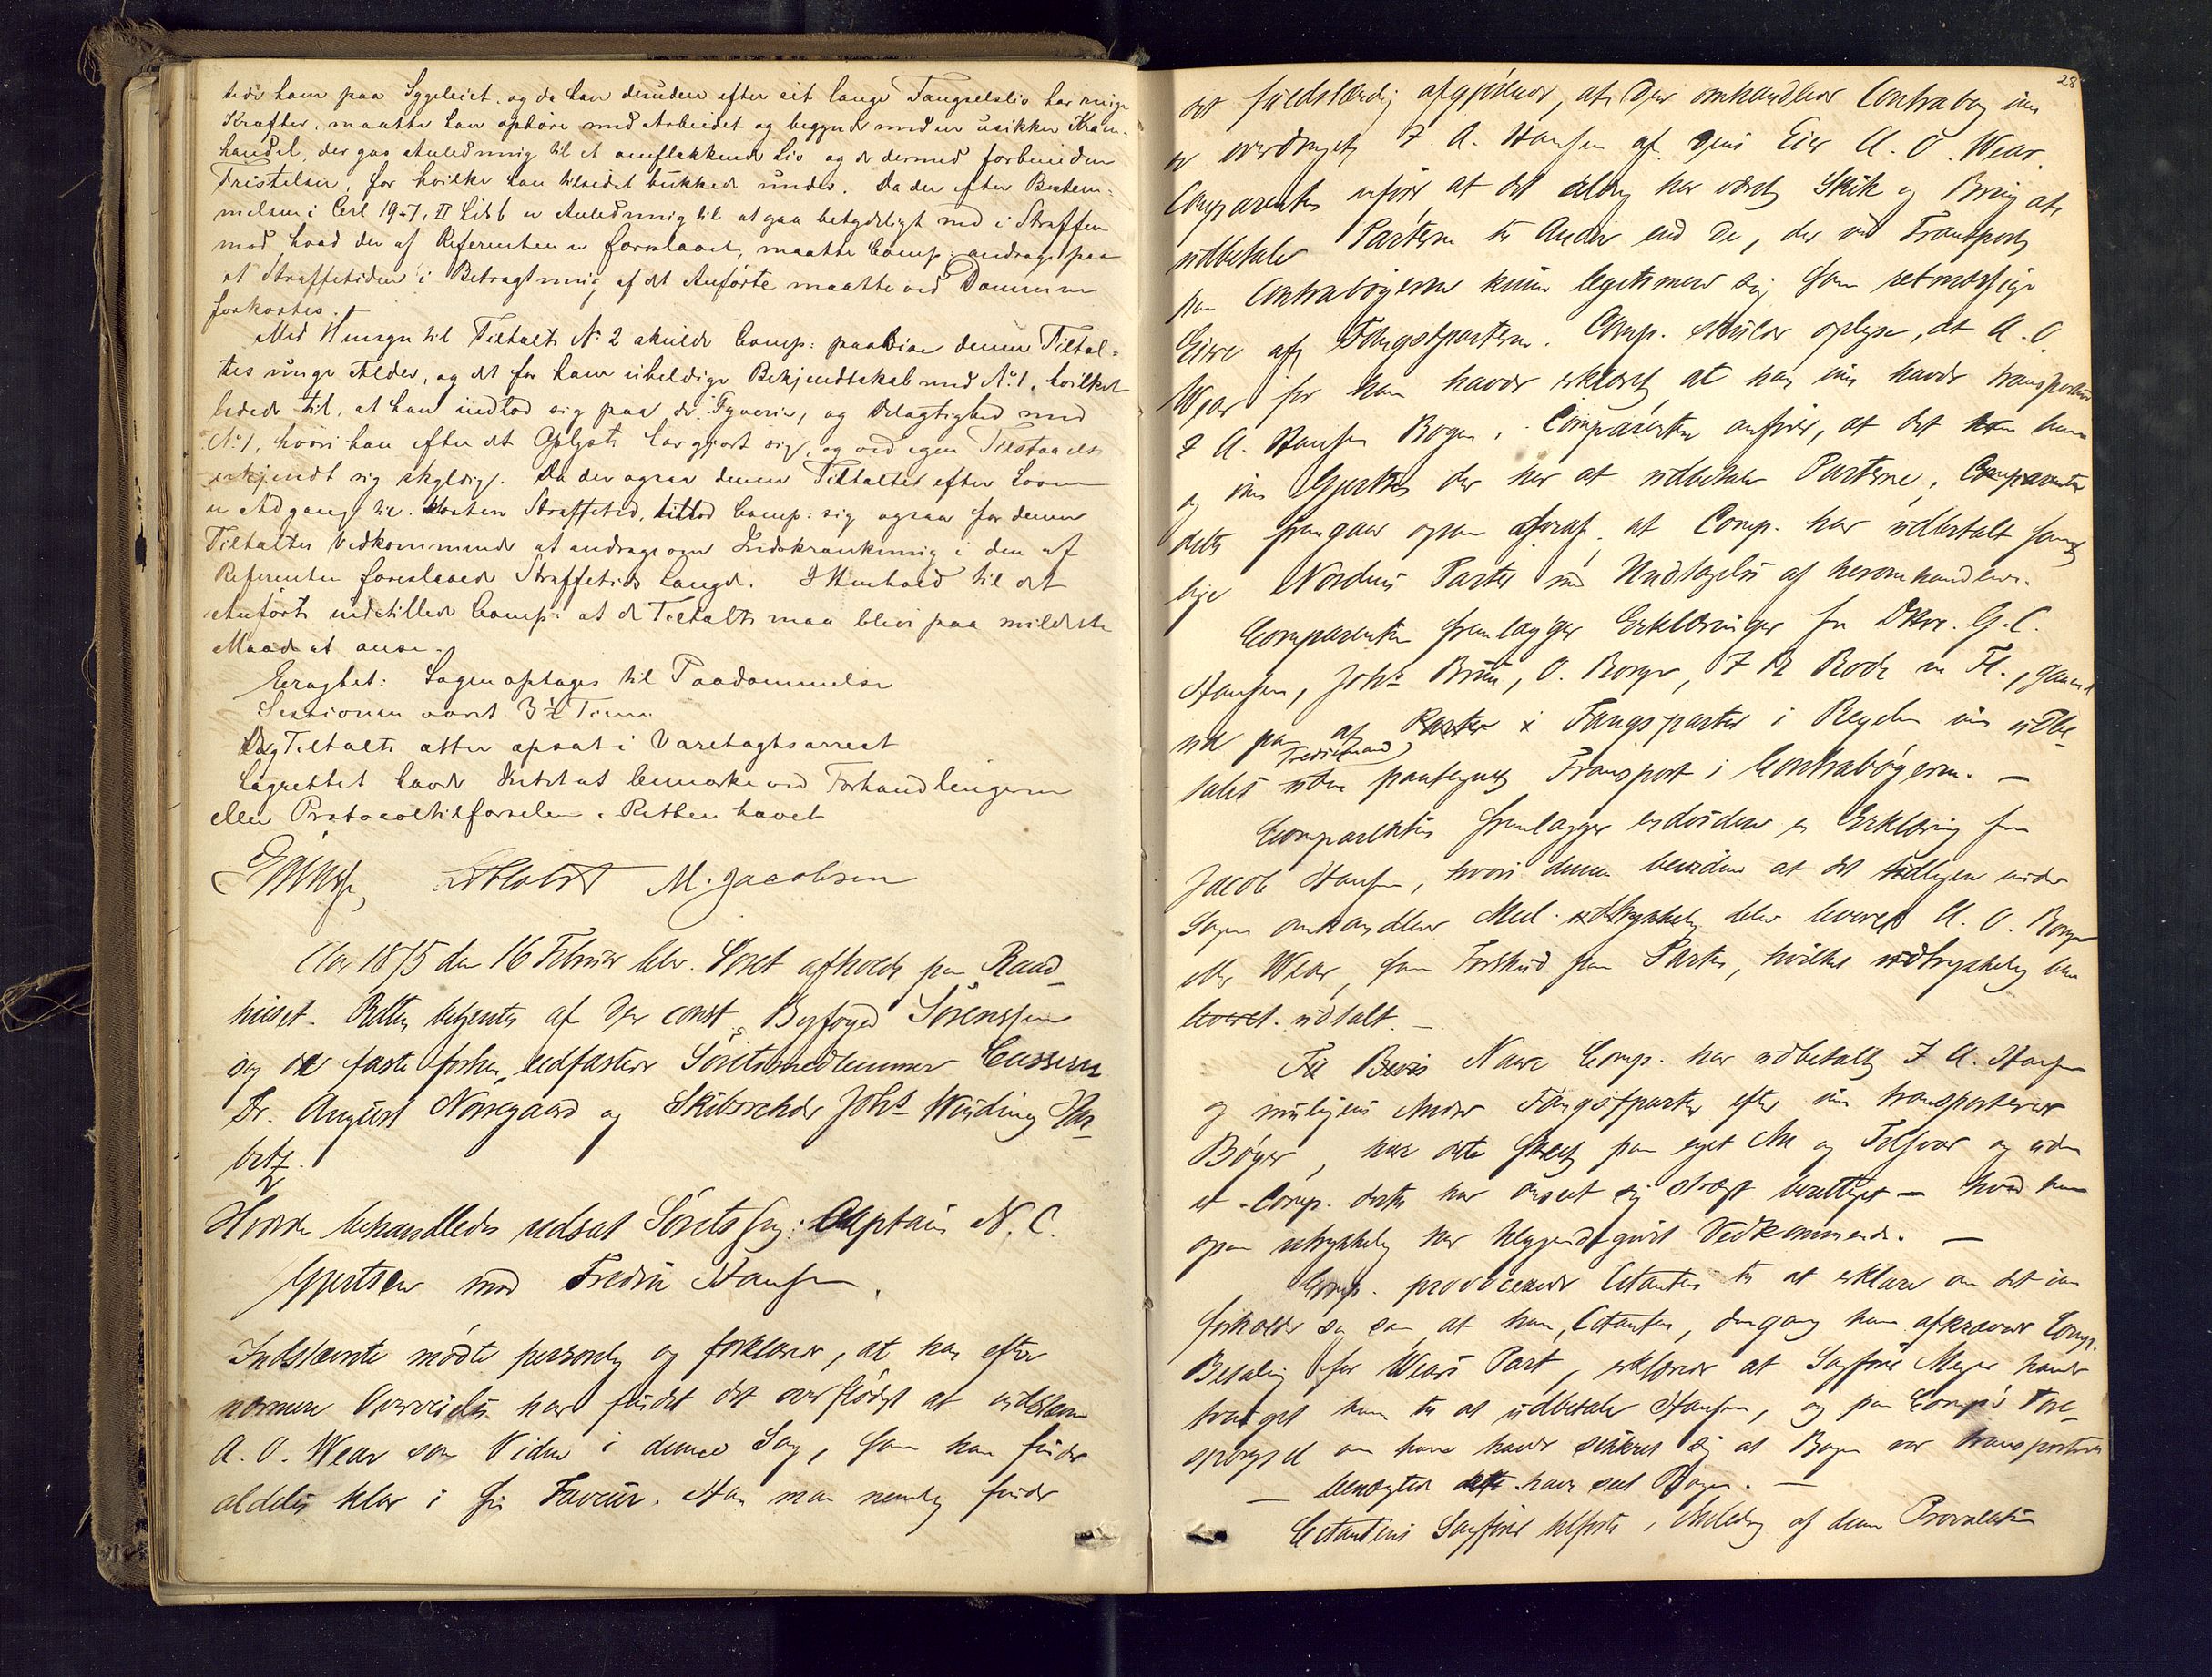 hede ham paa Sygeleiet, og da han desuden efter sit lange Fængselsliv har ringe
Kræfter, maatte han ophöre med Arbeidet og begynde med en usikker Kram-
handel, der gav Anledning til et omflakkende Liv og de dermed forbundne
Fristelser, for hvilke han tilsidst bukkede under. Da der efter Bestem-
melsen i Crl 19-7, II Litb er Anledning til at gaa betydeligt ned i Straffen
mod hvad der af Referenten er foreslaaet, maatte Comp: andrage paa
at Straffetiden i Betragtning af det Anförte maatte ved Dommen
forkortes.
Med Hensyn til Tiltalte No 2 skulde Comp: paavise denne Tiltal-
tes unge Alder, og det for ham uheldige Bekjendtskab med No 1, hvilket
ledede til, at han indlod sig paa de Tyverier, og Delagtighed med
No 1, hvori han efter det Oplyste har gjort sig, og ved egen Tilstaaelse
erkjendt sig skyldig. Da der ogsaa denne Tiltaltes efter Loven
er Adgang til kortere Straffetid, tillod Comp: sig ogsaa for denne
Tiltaltes Vedkommende at andrage om Indskrænkning i den af
Referenten foreslaaede Straffetids Længde. I Henhold til det
Anförte indstillede Comp: at de Tiltalte maa blive paa mildeste
Maade at anse.
Eragtet: Sagen optages til Paadømmelse
Sessionen varet 3½ Time.
Tiltalte atter opsat i Varetægtsarrest
Lagrettet havde Intet at bemærke ved Forhandlingerne
eller Protocoltilførselen. Retten hævet
M. Jacobsen
Aar 1875 den 16 Februar blev Söret afholdt paa Raad-
huset. Retten betjentes af den const. Byfoged Sörenssen
og de faste forhen edfæstede Söretsmedlemmer
Fr. August Norregaard og Skibsreder Johs Winding
Hvorda behandledes udsat Söretssag: Captain N. C.
Gjertsen mod Fredrik Hansen.
Indstævnte mödte personlig og forklarede, at han efter
nærmere Overveielse har fundet det overflödigt at indstævne
A. O. Wear som Vidne i denne Sag, som han finder
aldeles klar i sin Faveur. Han maa nemlig finde
28
det fuldstændig afgjörende, at den omhandlede Contrabog ikke
er overdraget F. A. Hansen af dens Eier A. O. Wear.
Comparenten anförer at det aldrig har været Skik og Brug at
udbetale Parterne til Andre end De, der ved Transport
paa Contrabögerne kunne legitimere sig som retmæssige
Eiere af Fangstparterne. Comp. skulde oplyse, at A. O.
Wear for ham havde erklæret at han ikke havde transporteret
F A. Hansen Bogen. Comparenten anförer, at det er ham
og ikke Gjertsen der har at udbetale Parterne, Comparenten
dette fremgaar ogsaa deraf, at Comp. har udbetalt samt-
lige Nordens Parter med Undtagelse af heromhandlede.
Comparenten fremlægger Erklæringer fra DHrr. G. C.
Hansen, Johs Bruun, O. Borge, F M Bock m Fl., gaaende
ud paa at Parter i Fangstparter i Regelen ikke udbe-
Fredrikstad
tales uden paategnet Transport i Contrabögerne. —
Comparenten fremlægger endvidere en Erklæring fra
Jacob Hansen, hvori denne bevidner at det tidligere under
Sagen omhandlede Meel udtrykkelig blev leveret A. O. Borge
eller Wear, som Forskud paa Parter, hvilket udtrykkelig blev
leveret. udtalt. —
Til Bevis Naar Comp. har udbetalt F A. Hansen
og muligens Andre Fangstparter efter ikke transporterede
Böger, har dette skeet paa eget An og Tilsvar og uden
at Comp. dertil har anseet sig strengt berettiget — hvad han
ogsaa udtrykkelig har tilkjendegivet Vedkommende. —
Comp. provocerede Citanten til at erklære om det ikke
forholder sig saa, at han, Citanten, dengang han afkrævede Comp.
Betaling for Wears Part, erklærede at Sagförer Meyer havde
tvunget ham til at udbetale Hansen, og paa Comp's Fore-
spörgsel om han havde sikkret sig at Bogen var transporteret
— benægtede at have seet Bogen. —
Citantens Sagförer tilförte i Anledng af denne Provocation